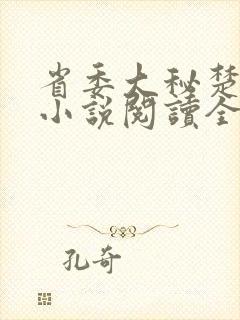 省委大秘楚
小説閱讀全
孔奇